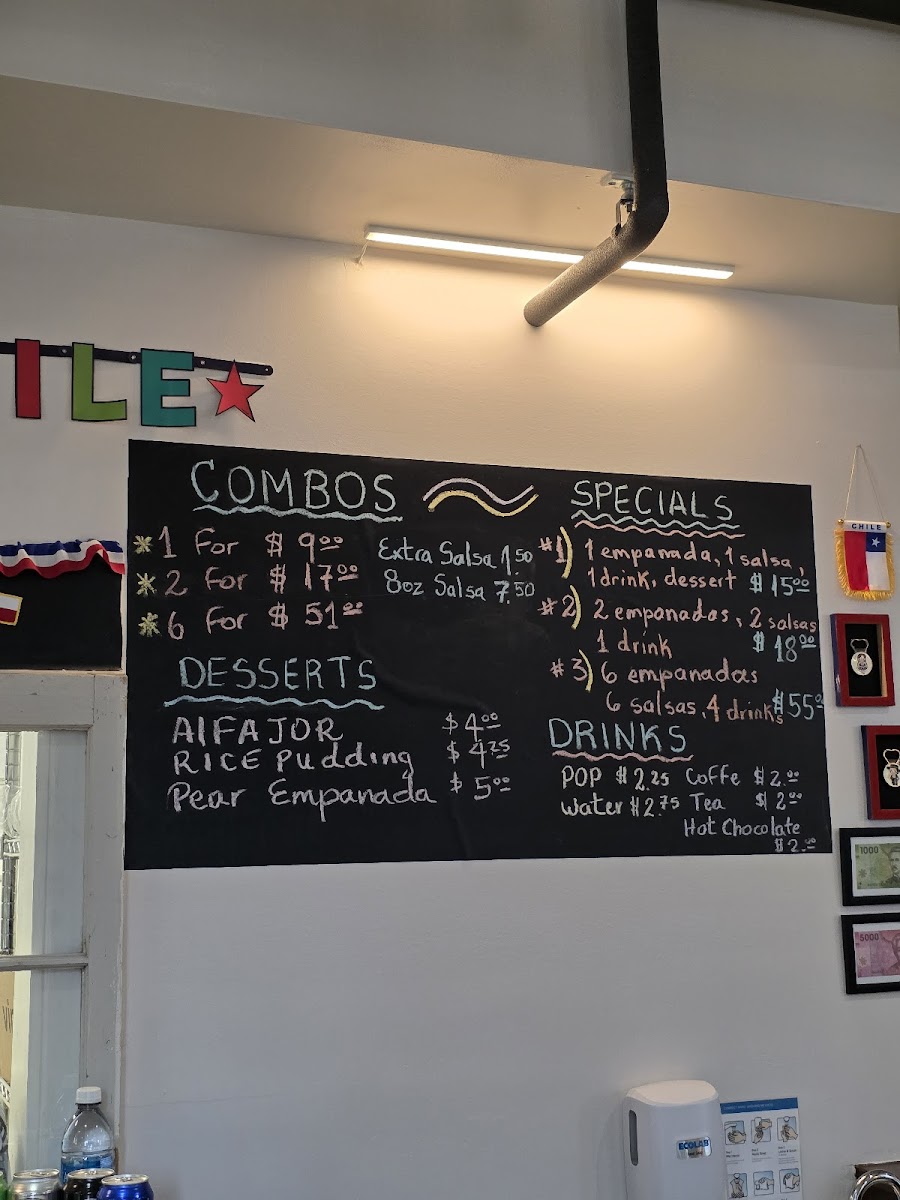 ILE
COMBOS
1 For $ 9.00
2 For $ 17.00
6 For $ 51.00
Extra Salsa 1.50
8oz Salsa 7.50
DESSERTS
AlFAJOR $ 4.00
RICE Pudding $ 4.25
Pear Empanada $ 5.00
SPECIALS
#1) 1 empanada, 1 salsa,
1 drink, dessert $ 15.00
#2) 2 empanadas, 2 salsas
1 drink $ 18.00
#3) 6 empanadas
6 salsas, 4 drinks $55.00
DRINKS
POP $2.25 Coffe $2.00
water $2.75 Tea $2.00
Hot Chocolate
$2.00
CHILE
1000
5000
ECOLAB